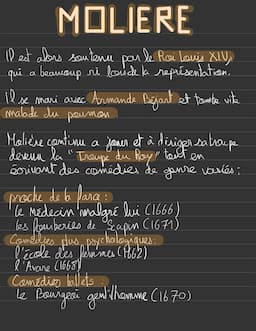 MOLIERE
Il est alors soutenu par le Roi Louis XIV,
qui a beaucoup ri lors de la représentation.
Il se mari avec Armande Béjart et tombe vite
malade du poumon
Molière continu a jouer et à diriger sa troupe
devenu la "Troupe du Roy" tout en
écrivant des comédies de genre variés :
proche de la farce :
le médecin malgré lui (1666)
les fourberies de Scapin (1671)
Comédies plus psychologiques :
l'école des femmes (1662)
l'Avare (1668)
Comédies ballets :
le Bourgeoi gentilhomme (1670)